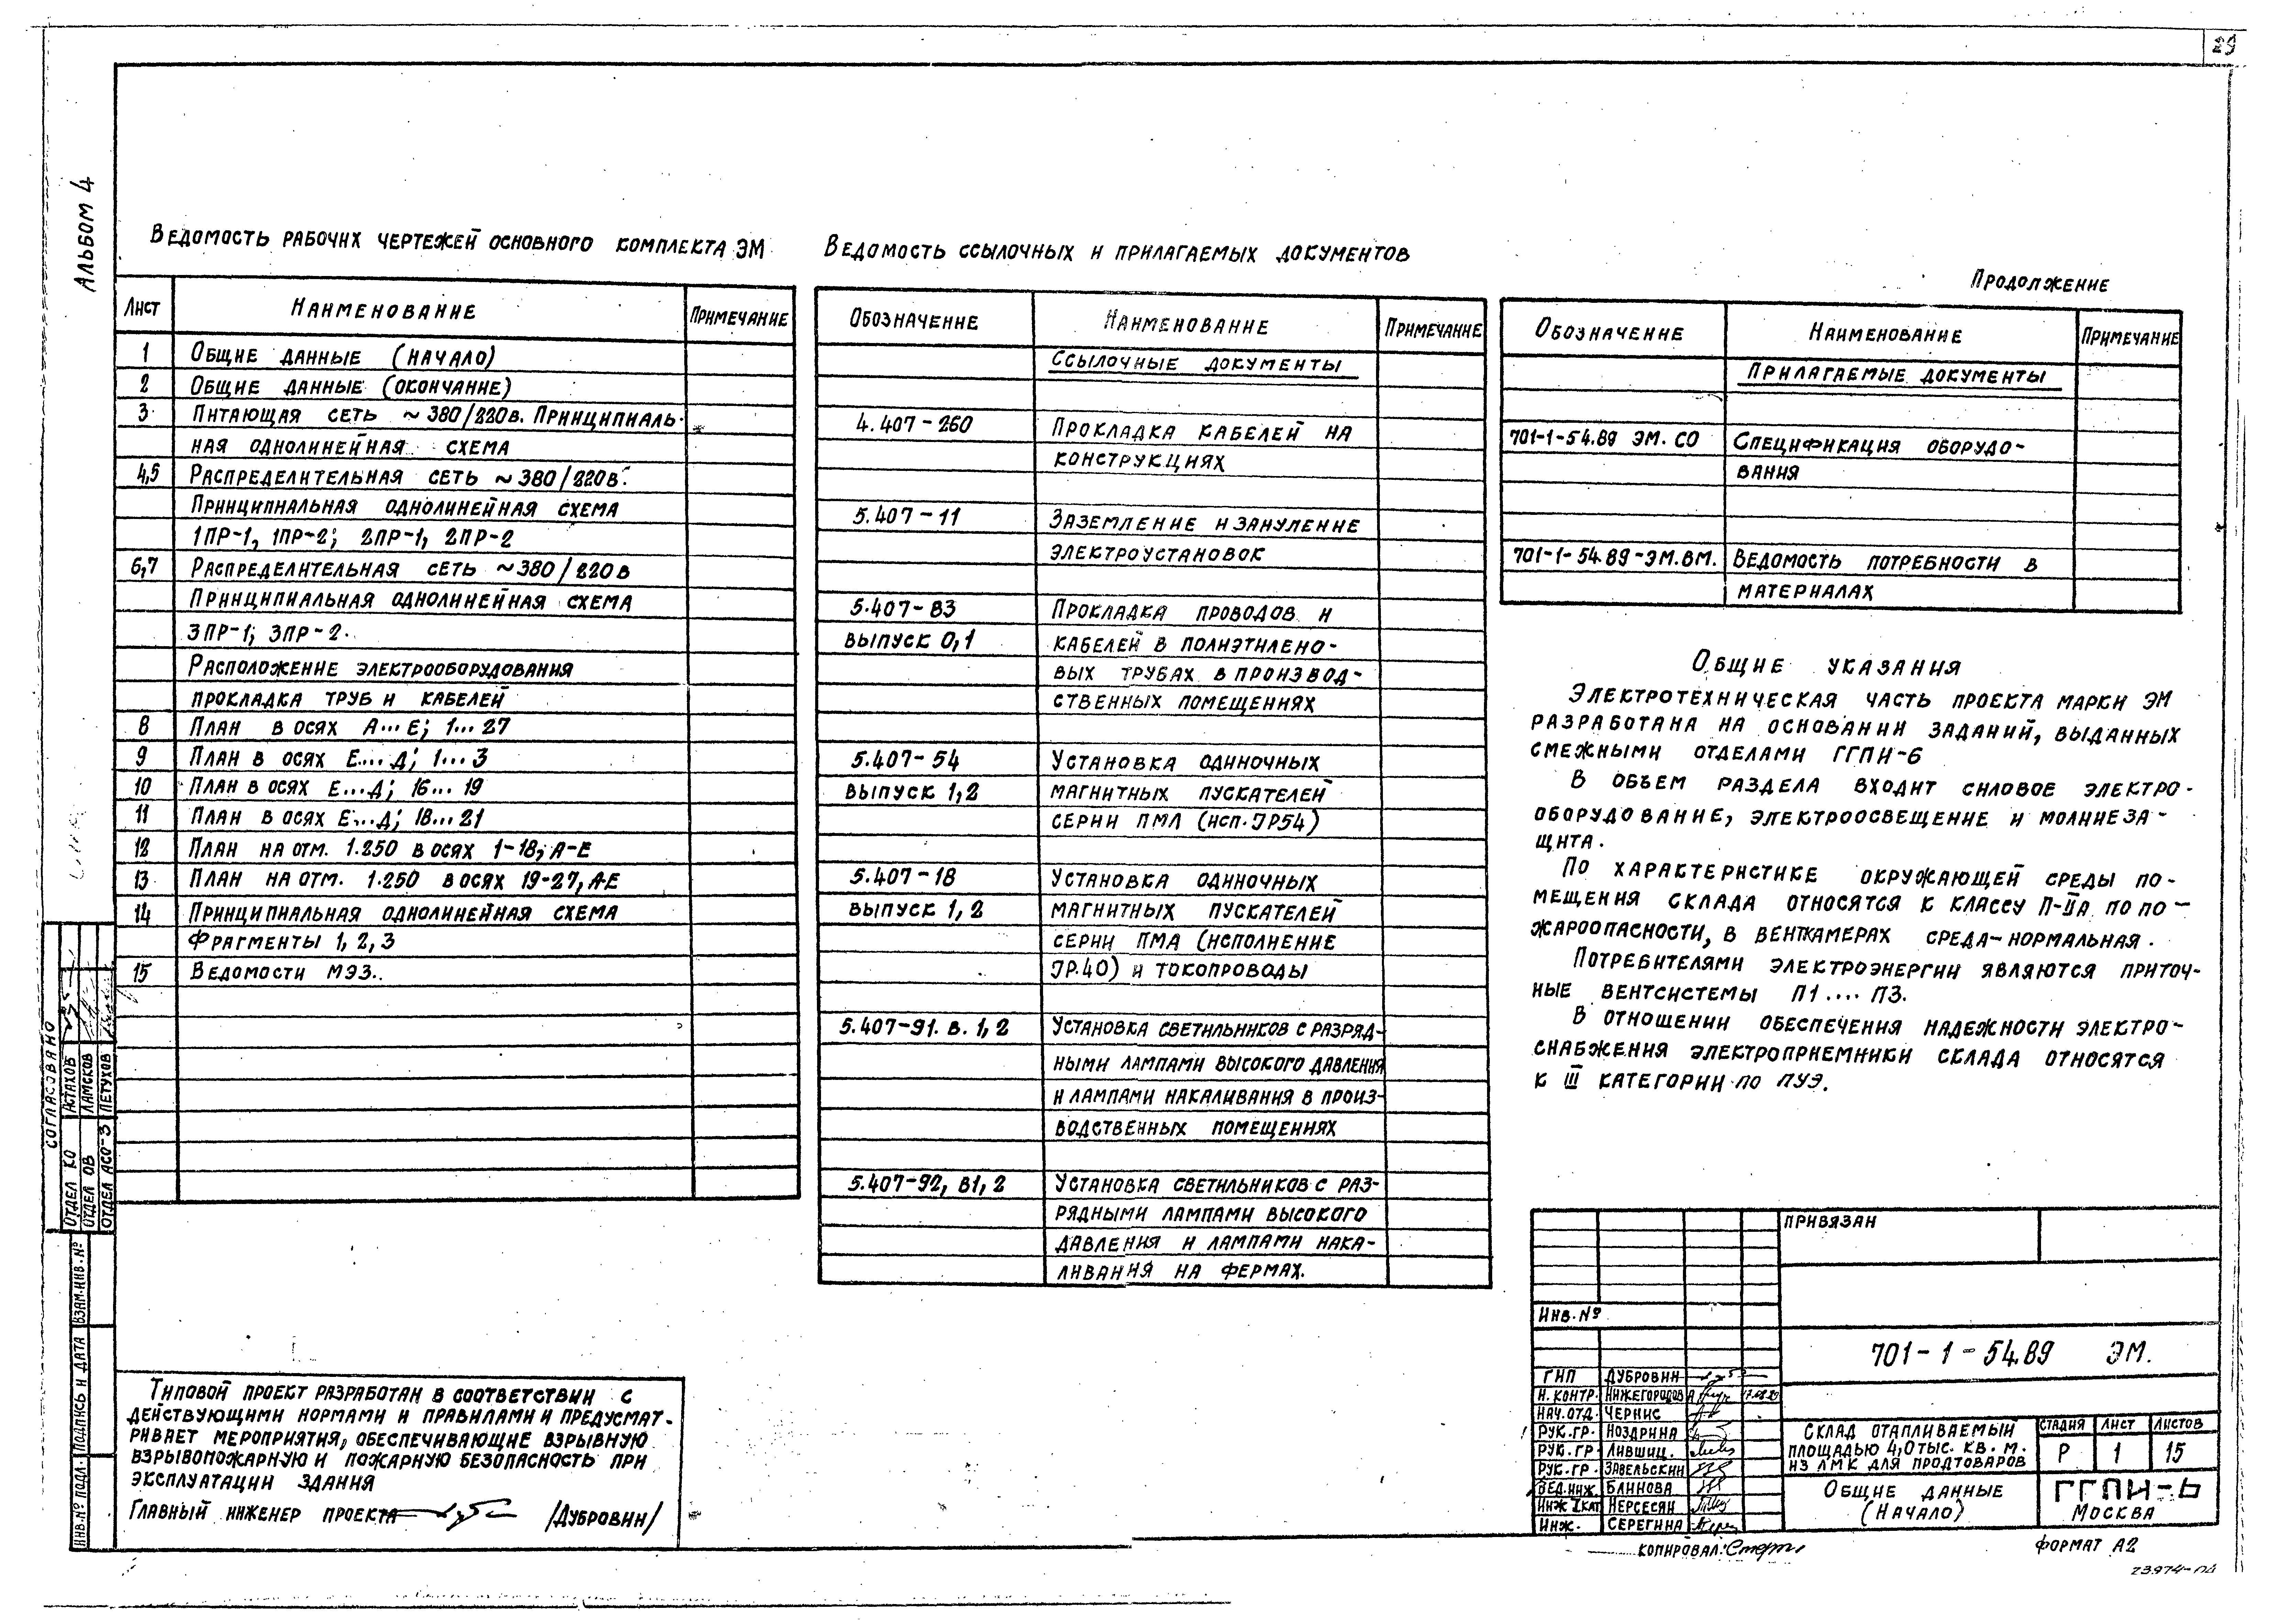 29
Альбом 4
Ведомость рабочих чертежей основного комплекта ЭМ
Лист Наименование Примечание
1 Общие данные (начало)
2 Общие данные (окончание)
3 Питающая сеть ~380/220в. Принципиаль-
ная однолинейная схема
4,5 Распределительная сеть ~380/220в.
Принципиальная однолинейная схема
1ПР-1, 1ПР-2; 2ПР-1, 2ПР-2
6,7 Распределительная сеть ~380/220в
Принципиальная однолинейная схема
3ПР-1; 3ПР-2.
Расположение электрооборудования
прокладка труб и кабелей
8 План в осях А...Е; 1...27
9 План в осях Е....Д; 1...3
10 План в осях Е...Д; 16...19
11 План в осях Е...Д; 18...21
12 План на отм. 1.250 в осях 1-18; А-Е
13 План на отм. 1.250 в осях 19-27, А-Е
14 Принципиальная однолинейная схема
Фрагменты 1, 2, 3
15 Ведомости МЭЗ..
Ведомость ссылочных и прилагаемых документов
Обозначение Наименование Примечание
Ссылочные документы
4.407-260 Прокладка кабелей на
конструкциях
5.407-11 Заземление и зануление
электроустановок
5.407-83 Прокладка проводов и
выпуск 0,1 кабелей в полиэтилено-
вых трубах в производ-
ственных помещениях
5.407-54 Установка одиночных
выпуск 1,2 магнитных пускателей
серии ПМЛ (исп. JP54)
5.407-18 Установка одиночных
выпуск 1,2 магнитных пускателей
серии ПМА (исполнение
JP.40) и токопроводы
5.407-91. в. 1, 2 Установка светильников с разряд-
ными лампами высокого давления
и лампами накаливания в произ-
водственных помещениях
5.407-92, в1, 2 Установка светильников с раз-
рядными лампами высокого
давления и лампами нака-
ливания на фермах.
Продолжение
Обозначение Наименование Примечание
Прилагаемые документы
701-1-54.89 ЭМ. СО Спецификация оборудо-
вания
701-1-54.89-ЭМ.ВМ. Ведомость потребности в
материалах
Общие указания
Электротехническая часть проекта марки ЭМ
разработана на основании заданий, выданных
смежными отделами ГГПИ-6
В объем раздела входит силовое электро-
оборудование, электроосвещение и молниеза-
щита.
По характеристике окружающей среды по-
мещения склада относятся к классу П-IIа по по-
жароопасности, в венткамерах среда-нормальная.
Потребителями электроэнергии являются приточ-
ные вентсистемы П1.... П3.
В отношении обеспечения надежности электро-
снабжения электроприемники склада относятся
к III категории по ПУЭ.
Согласовано
Отдел КО Астахов
Отдел ОВ Ламсков
Отдел АСО-3 Петухов
Взам.инв.№
Подпись и дата
Инв.№ подл.
Типовой проект разработан в соответствии с
действующими нормами и правилами и предусмат-
ривает мероприятия, обеспечивающие взрывную
взрывопожарную и пожарную безопасность при
эксплуатации здания
Главный инженер проекта /Дубровин/
Привязан
Инв. №
701-1-54.89 ЭМ.
ГИП Дубровин
Н. контр. Нижегородова
Нач.отд. Чернис
Рук.гр. Ноздрина
Рук.гр. Лившиц
Рук.гр. Завельский
Вед.инж. Блинова
Инж I кат Нерсесян
Инж. Серегина
Склад отапливаемый
площадью 4,0 тыс. кв. м.
из ЛМК для продтоваров
Стадия Лист Листов
Р 1 15
Общие данные
(Начало)
ГГПИ-6
Москва
Копировал:
Формат А2
23974-04